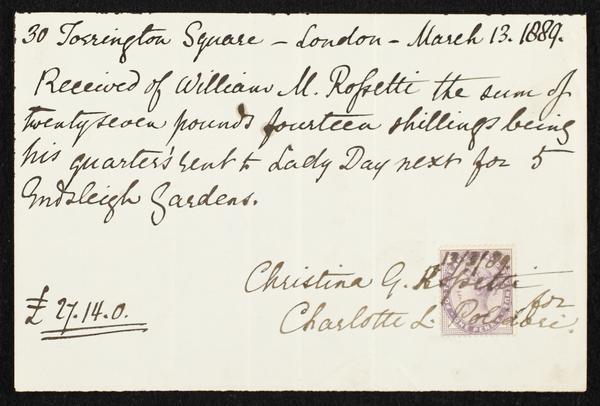 30 Torrington Square – London – March 13. 1889.
Received of William M. Rossetti the sum of
twenty seven pounds fourteen shillings being
his quarter's rent to Lady Day next for 5
Endsleigh Gardens.
13/3/89
Christina G. Rossetti
for
£ 27.14.0.
Charlotte L. Polidori.